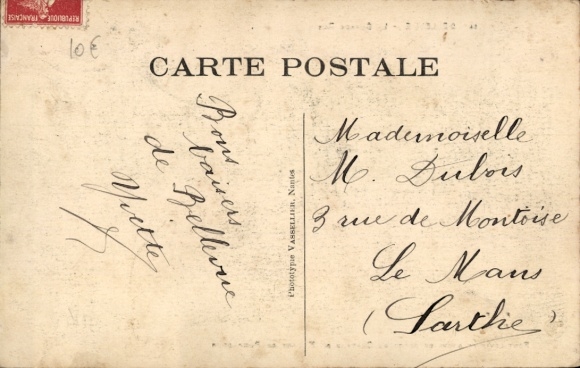 REPUBLIQUE FRANÇAISE
10€
CARTE POSTALE
Bons
baisers
de Bellevue
Yvette
Phototype VASSELLIER, Nantes
Mademoiselle
M. Dubois
3 rue de Montoise
Le Mans
(Sarthe)